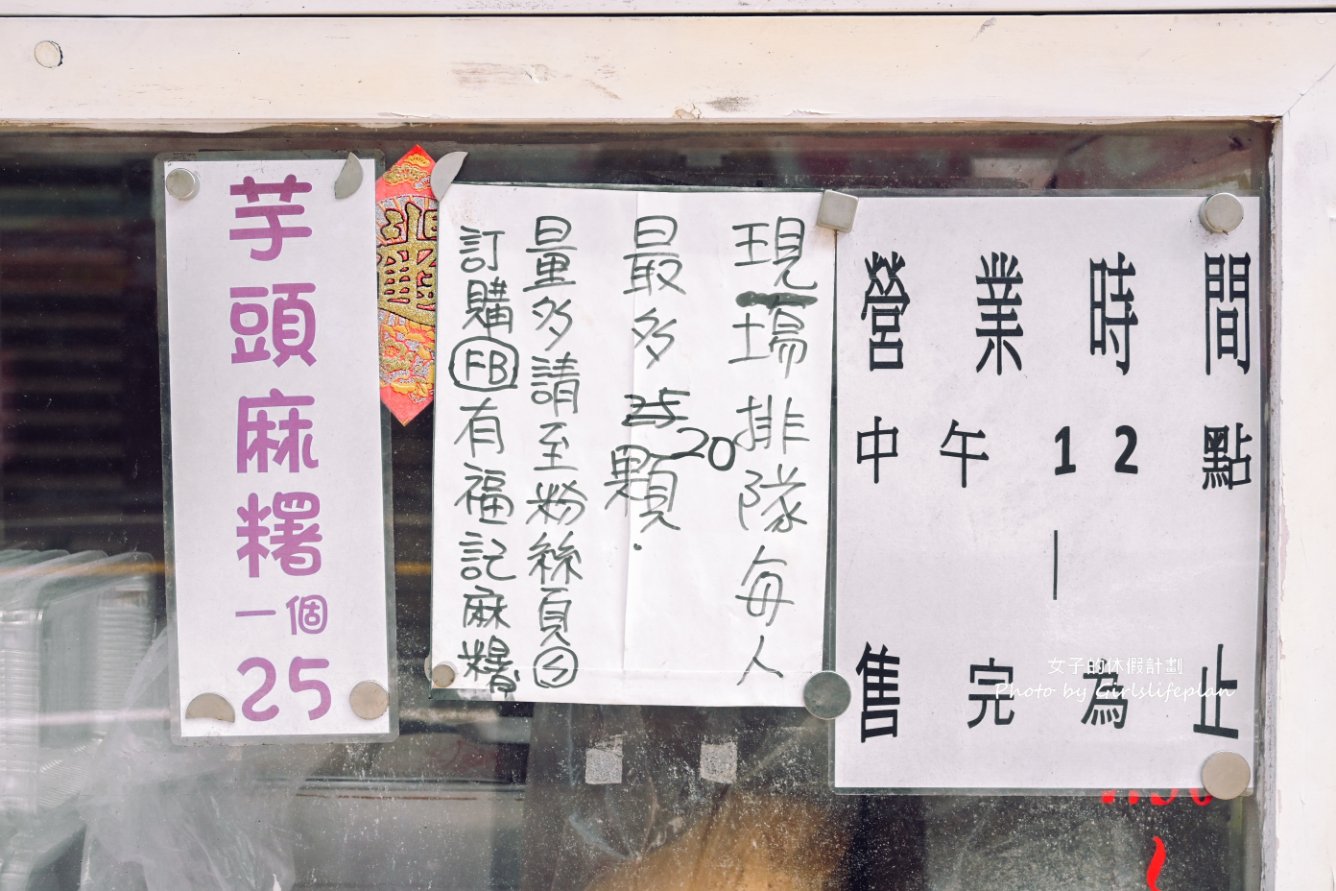 芋頭麻糬
一個
25
現場排隊每人
最多25顆.
20
量多請至粉絲頁
訂購FB有福記麻糬
營業時間
中午12點
|
售完為止
女子的休假計劃
Photo by Girlslifeplan